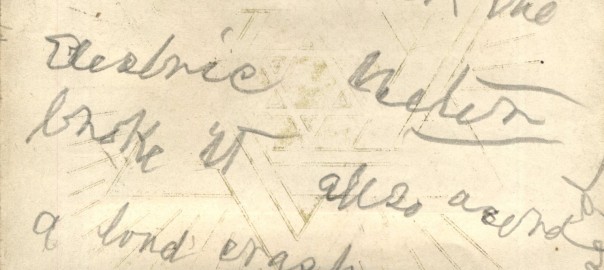 the
Electric Meter
broke it also a
a loud crash